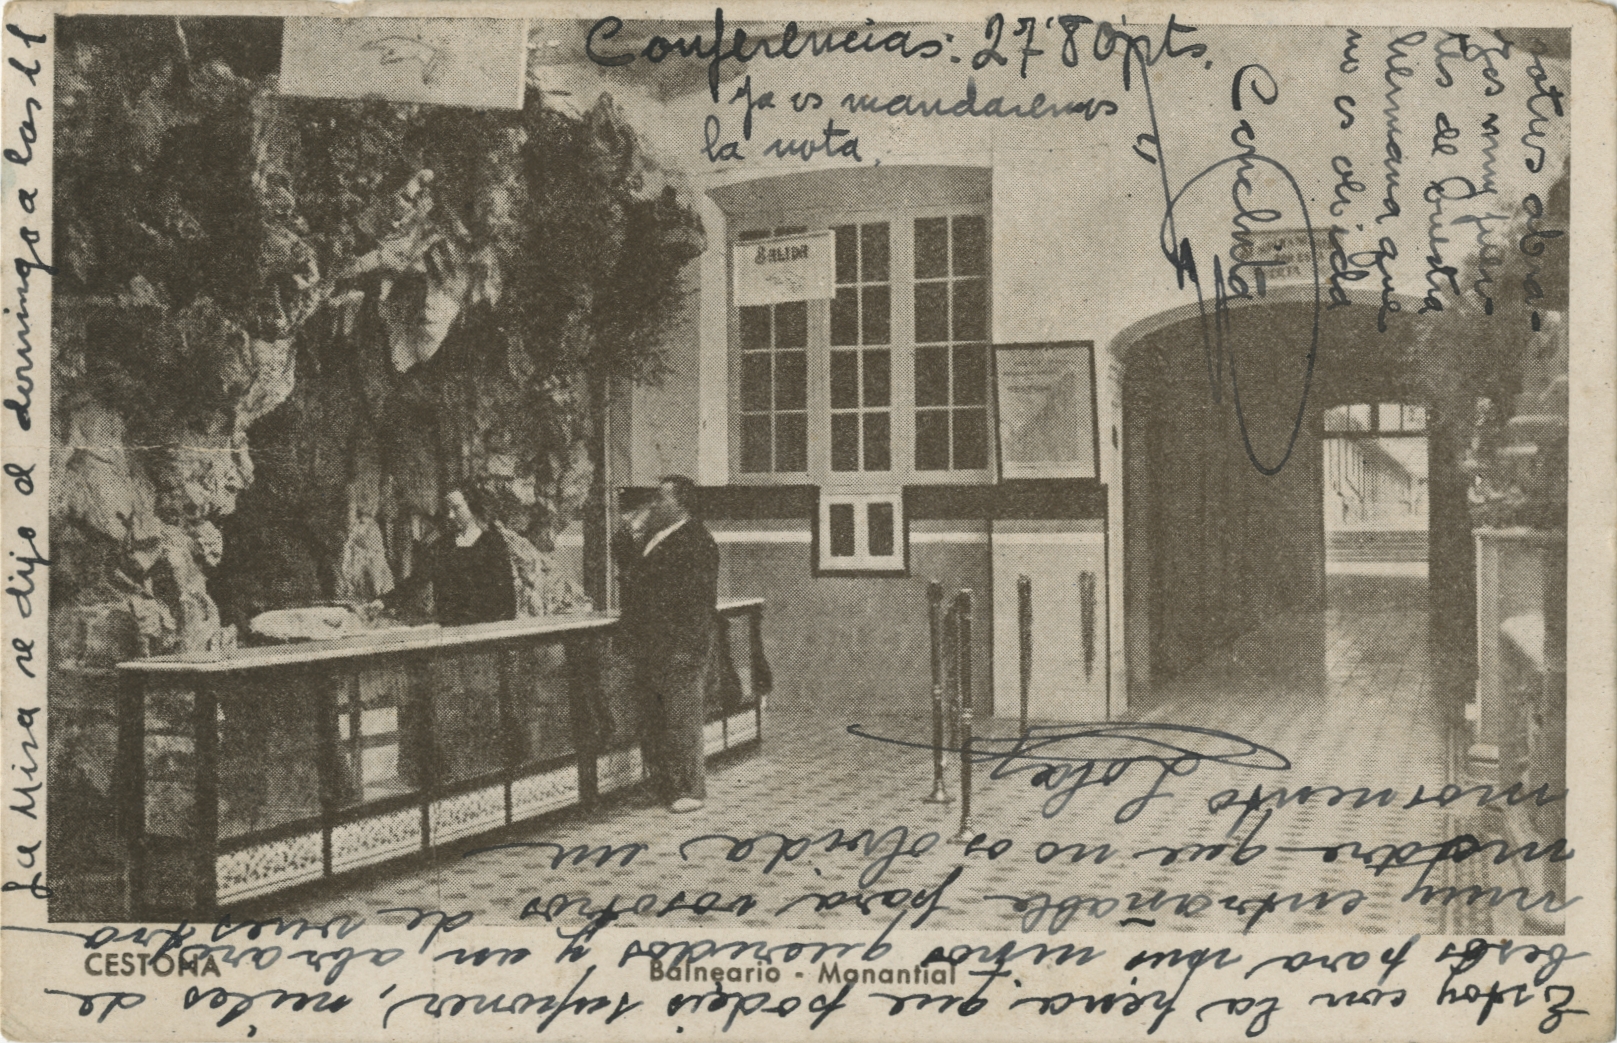 Conferencias: 27'80 pts.
Ya os mandaremos
la nota.
La Misa se dijo el domingo a las 11
SALIDA
votros abra-
zos muy fuer-
tes de vuestra
hermana que
no os olvida
Conchita
Estoy con la pena que podeis suponer, miles de
besos para mis niños queridos y un abrazo
muy entrañable para vosotros de vuestra
madre que no os olvida un
momento Lola
CESTONA
Balneario - Manantial